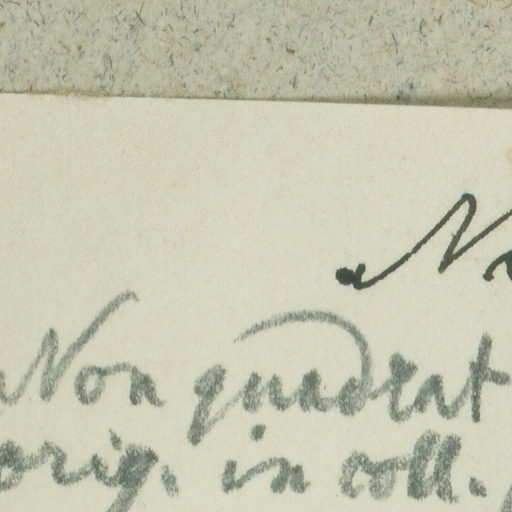 Non quadrat
orig. in coll.